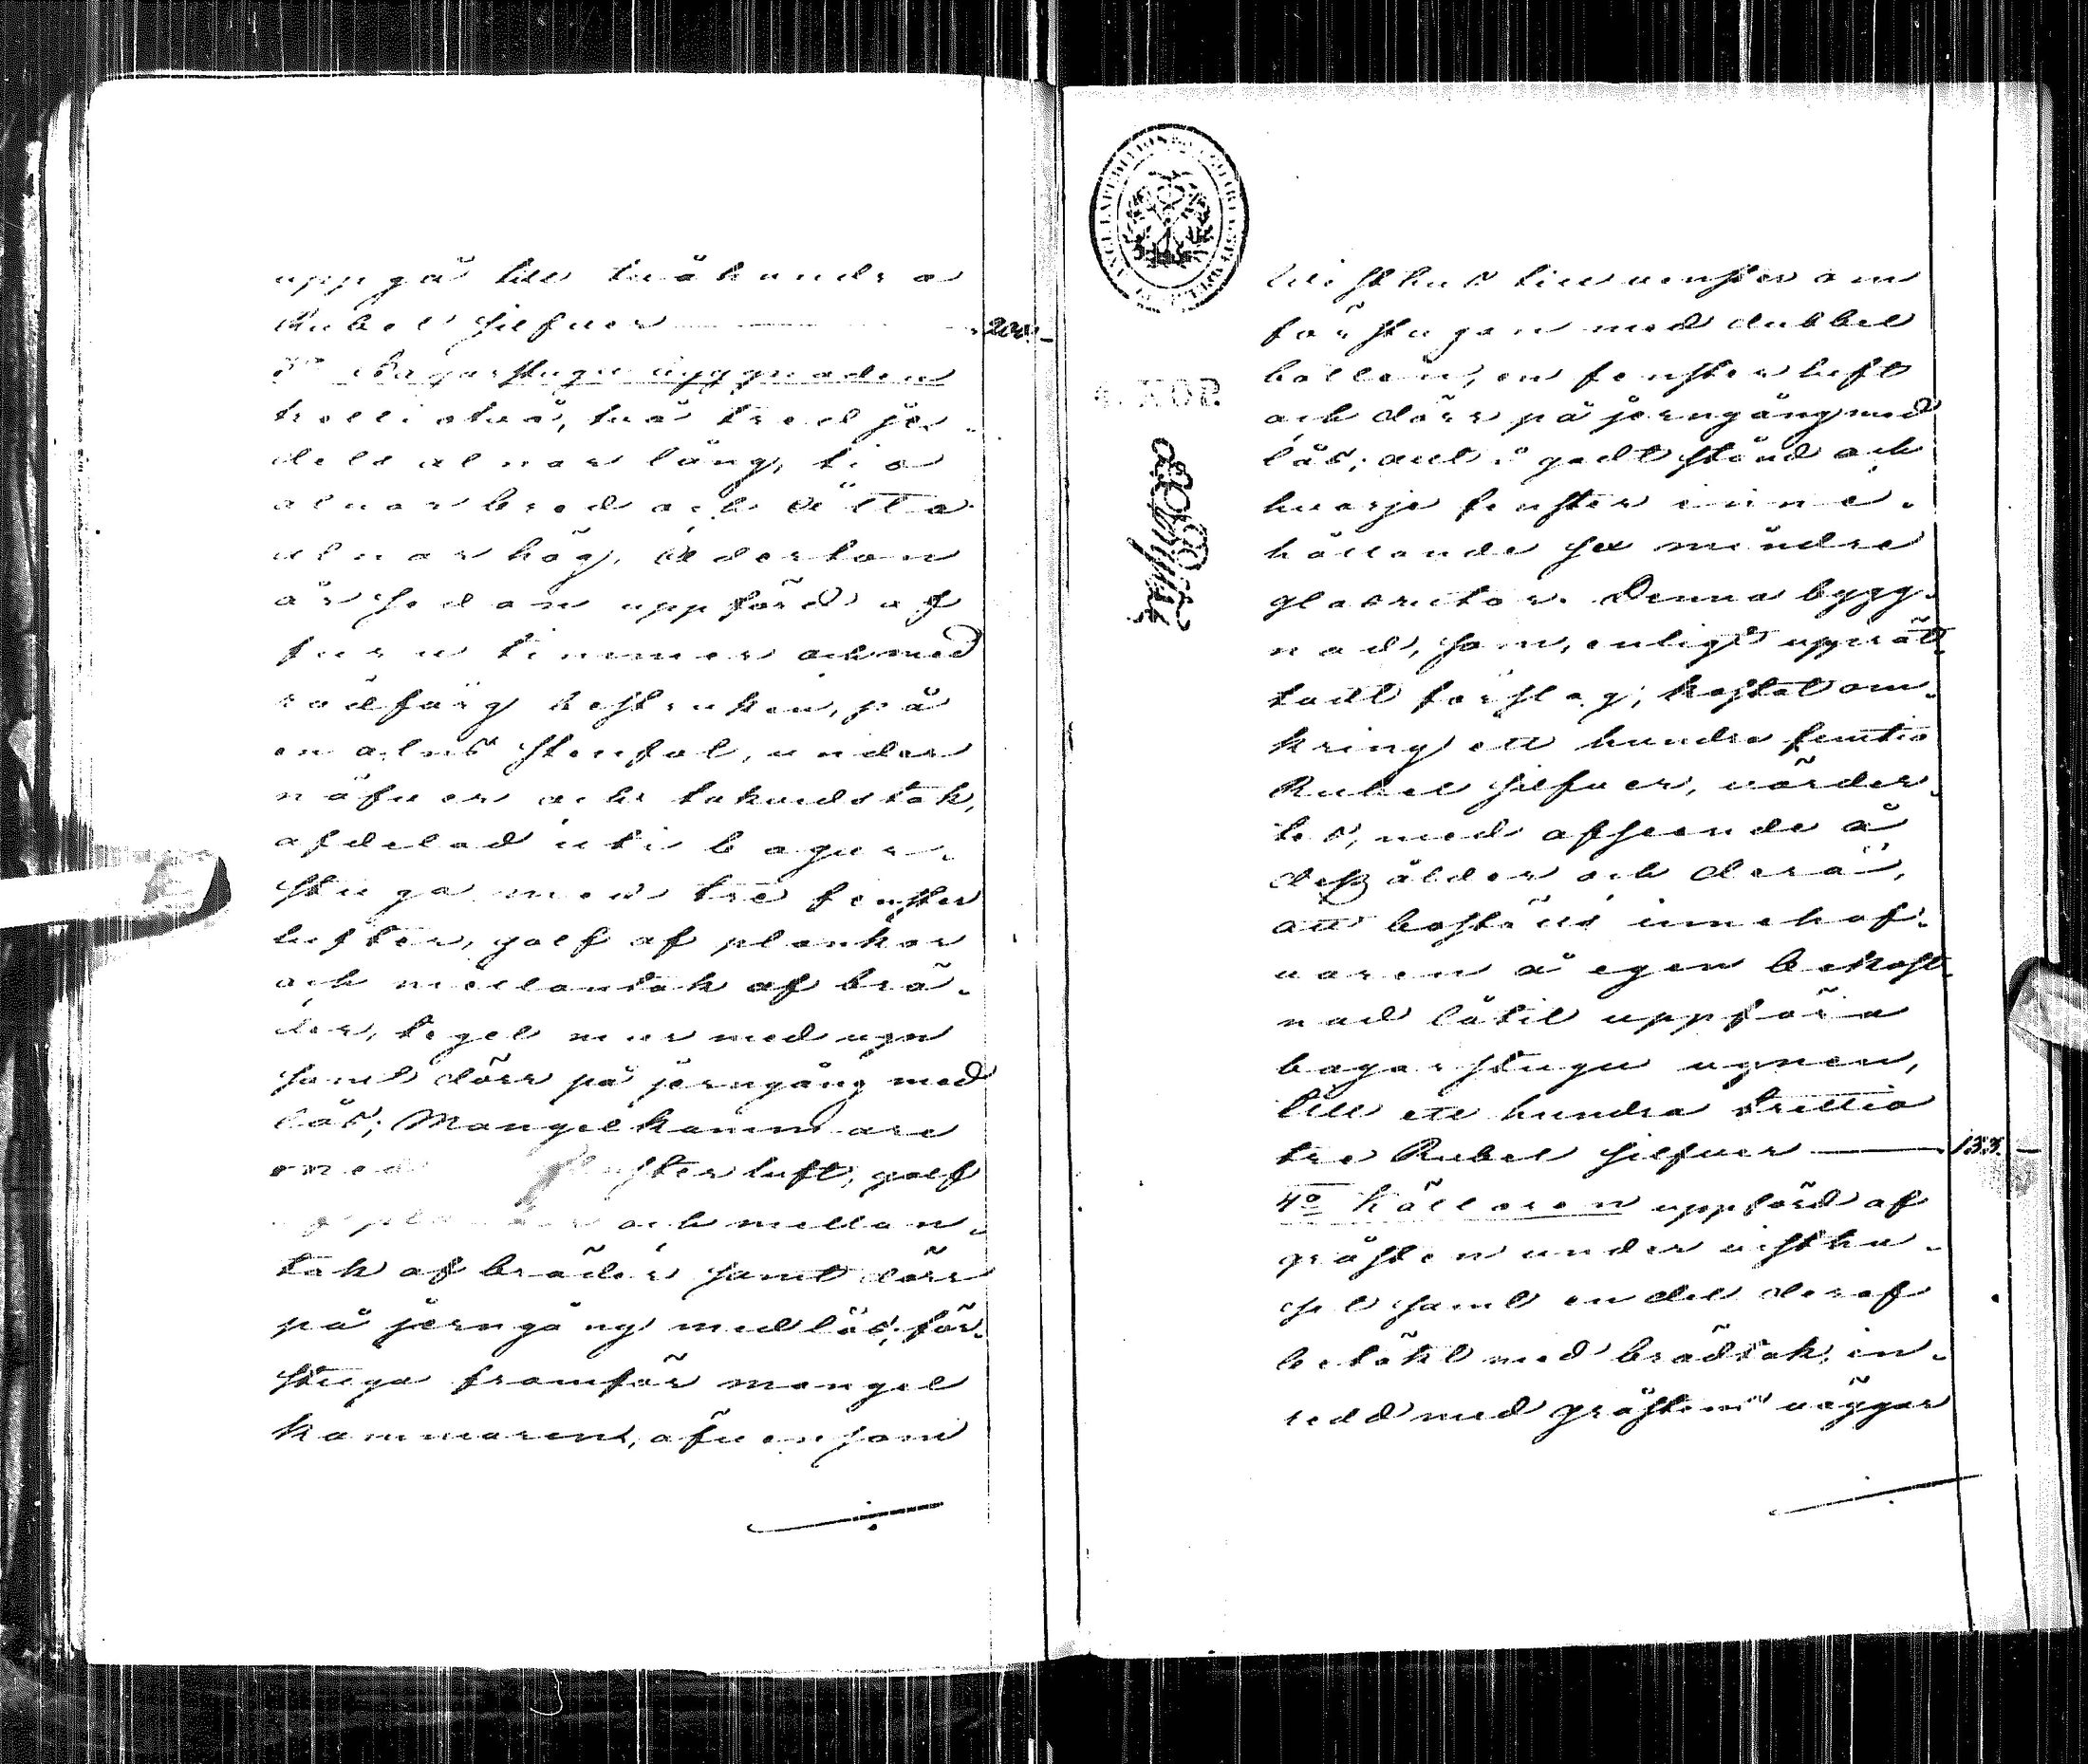 uppgå till tvåhundra
Rubel silfver 200. —
3o Bagarstugu byggnaden
trettiotvå, två tredje-
dels alnar lång, tio
alnar bred och åtta
alnar hög, Aderton
år sedan uppförd af
furu timmer och med
rödfärg bestruken, på
en alns stenfot, under
näfver och takvedstak,
afdelad uti bagar-
stuga med tre fenster
lufter, golf af plankor
och mellantak af brä-
der, tegel mur med ugn
samt dörr på jerngång med
lås; Mangelkammare
med fensterluft, golf
af plankor och mellan-
tak af bräder samt dörr
på jerngång med lås; för-
stuga framför mangel
kammaren, äfvensom
Visthus till venster om
förstugan med dubbel
botten, en fenster luft
och dörr på jerngång med
lås; allt i godt stånd och
hvarje fenster inne-
hållande sex mindre
glasrutor. Denna bygg-
nad, som, enligt upprät-
tadt förslag, kostat om-
kring ett hundra femtio
Rubel silfver, värder-
tes, med afseende å
dess ålder och derå,
att boställs innehaf-
varen å egen bekost-
nad låtit uppföra
bagarstugu ugnen,
till ett hundra trettio
tre Rubel silfver 133. —
4o Källaren uppförd af
gråsten under visthu-
set samt en del deraf
betäkt med brädtak, in-
redd med gråstens väggar
4. KOP.